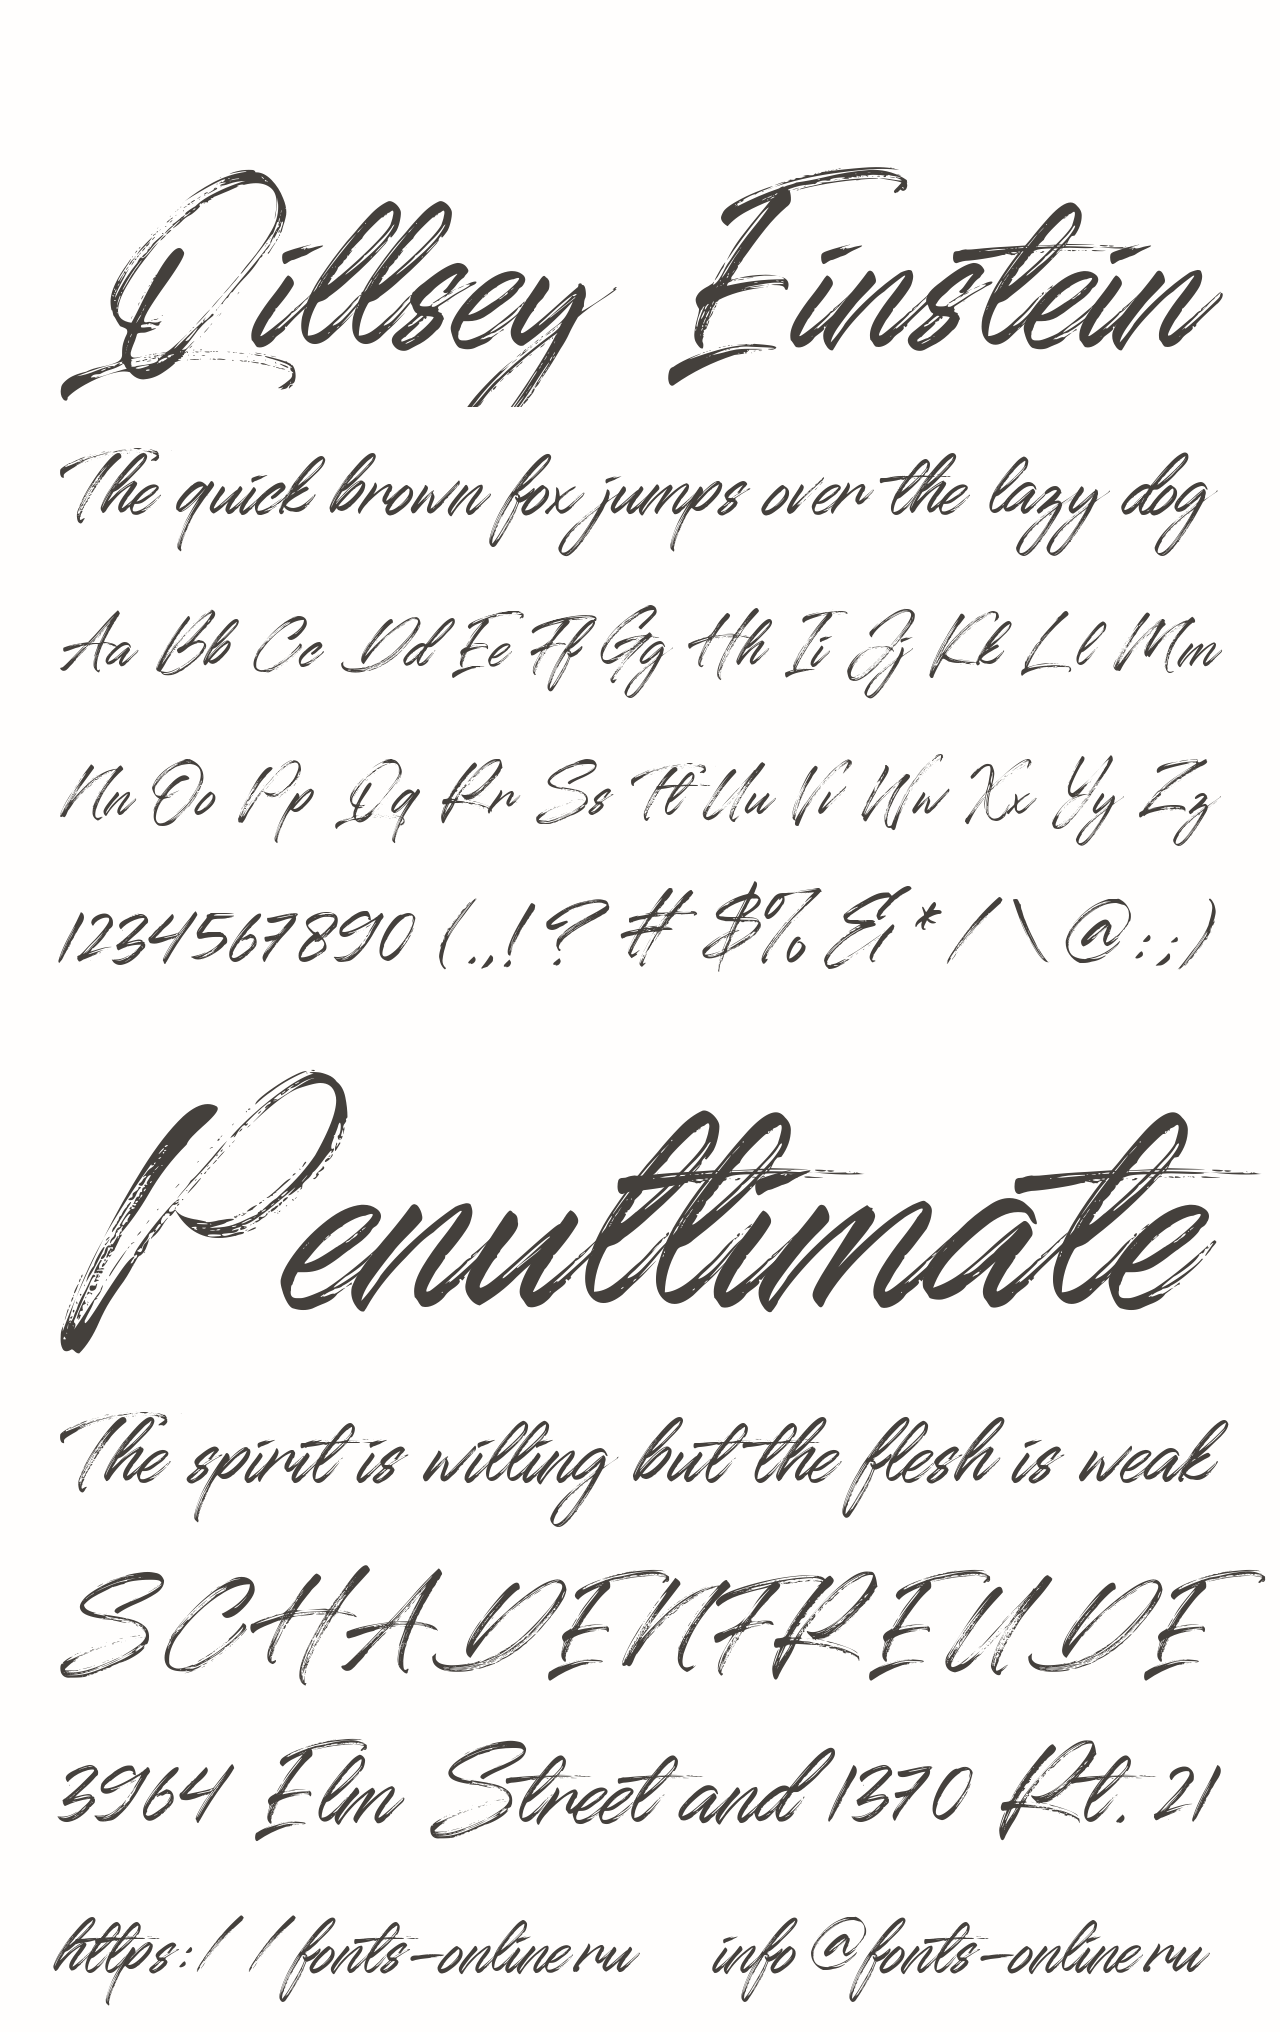 Qillsey Einstein
The quick brown fox jumps over the lazy dog
Aa Bb Cc Dd Ee Ff Gg Hh Ii Jj Kk Ll Mm
Nn Oo Pp Qq Rr Ss Tt Uu Vv Ww Xx Yy Zz
1234567890 (.,!? #$%&* / \ @:;)
Penultimate
The spirit is willing but the flesh is weak
SCHADENFREUDE
3964 Elm Street and 1370 Rt. 21
https://fonts-online ru info@fonts-online ru